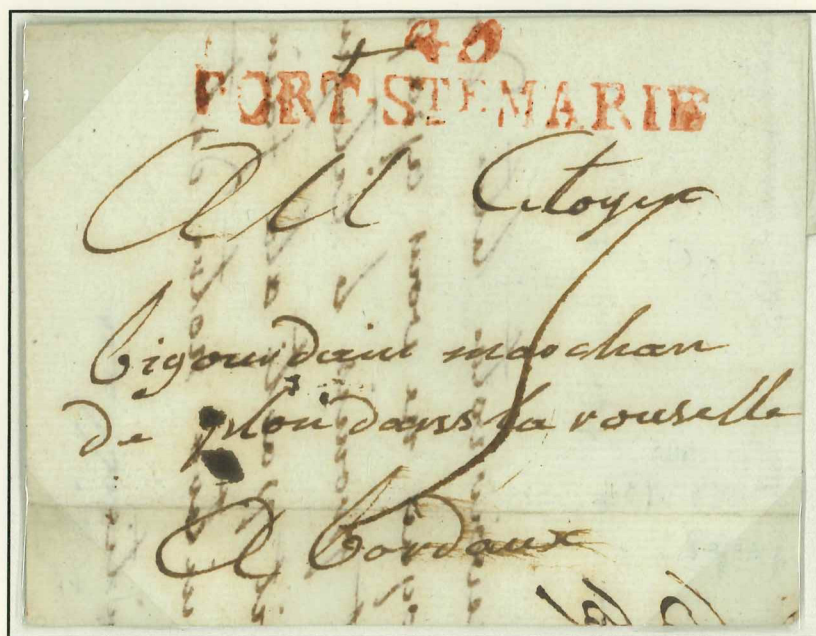 PORT-STE MARIE
Au Citoyen
bigourdain marchan
de dans la rouselle
A bordaux